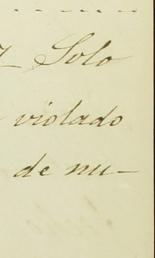 Solo
violado
de nu-